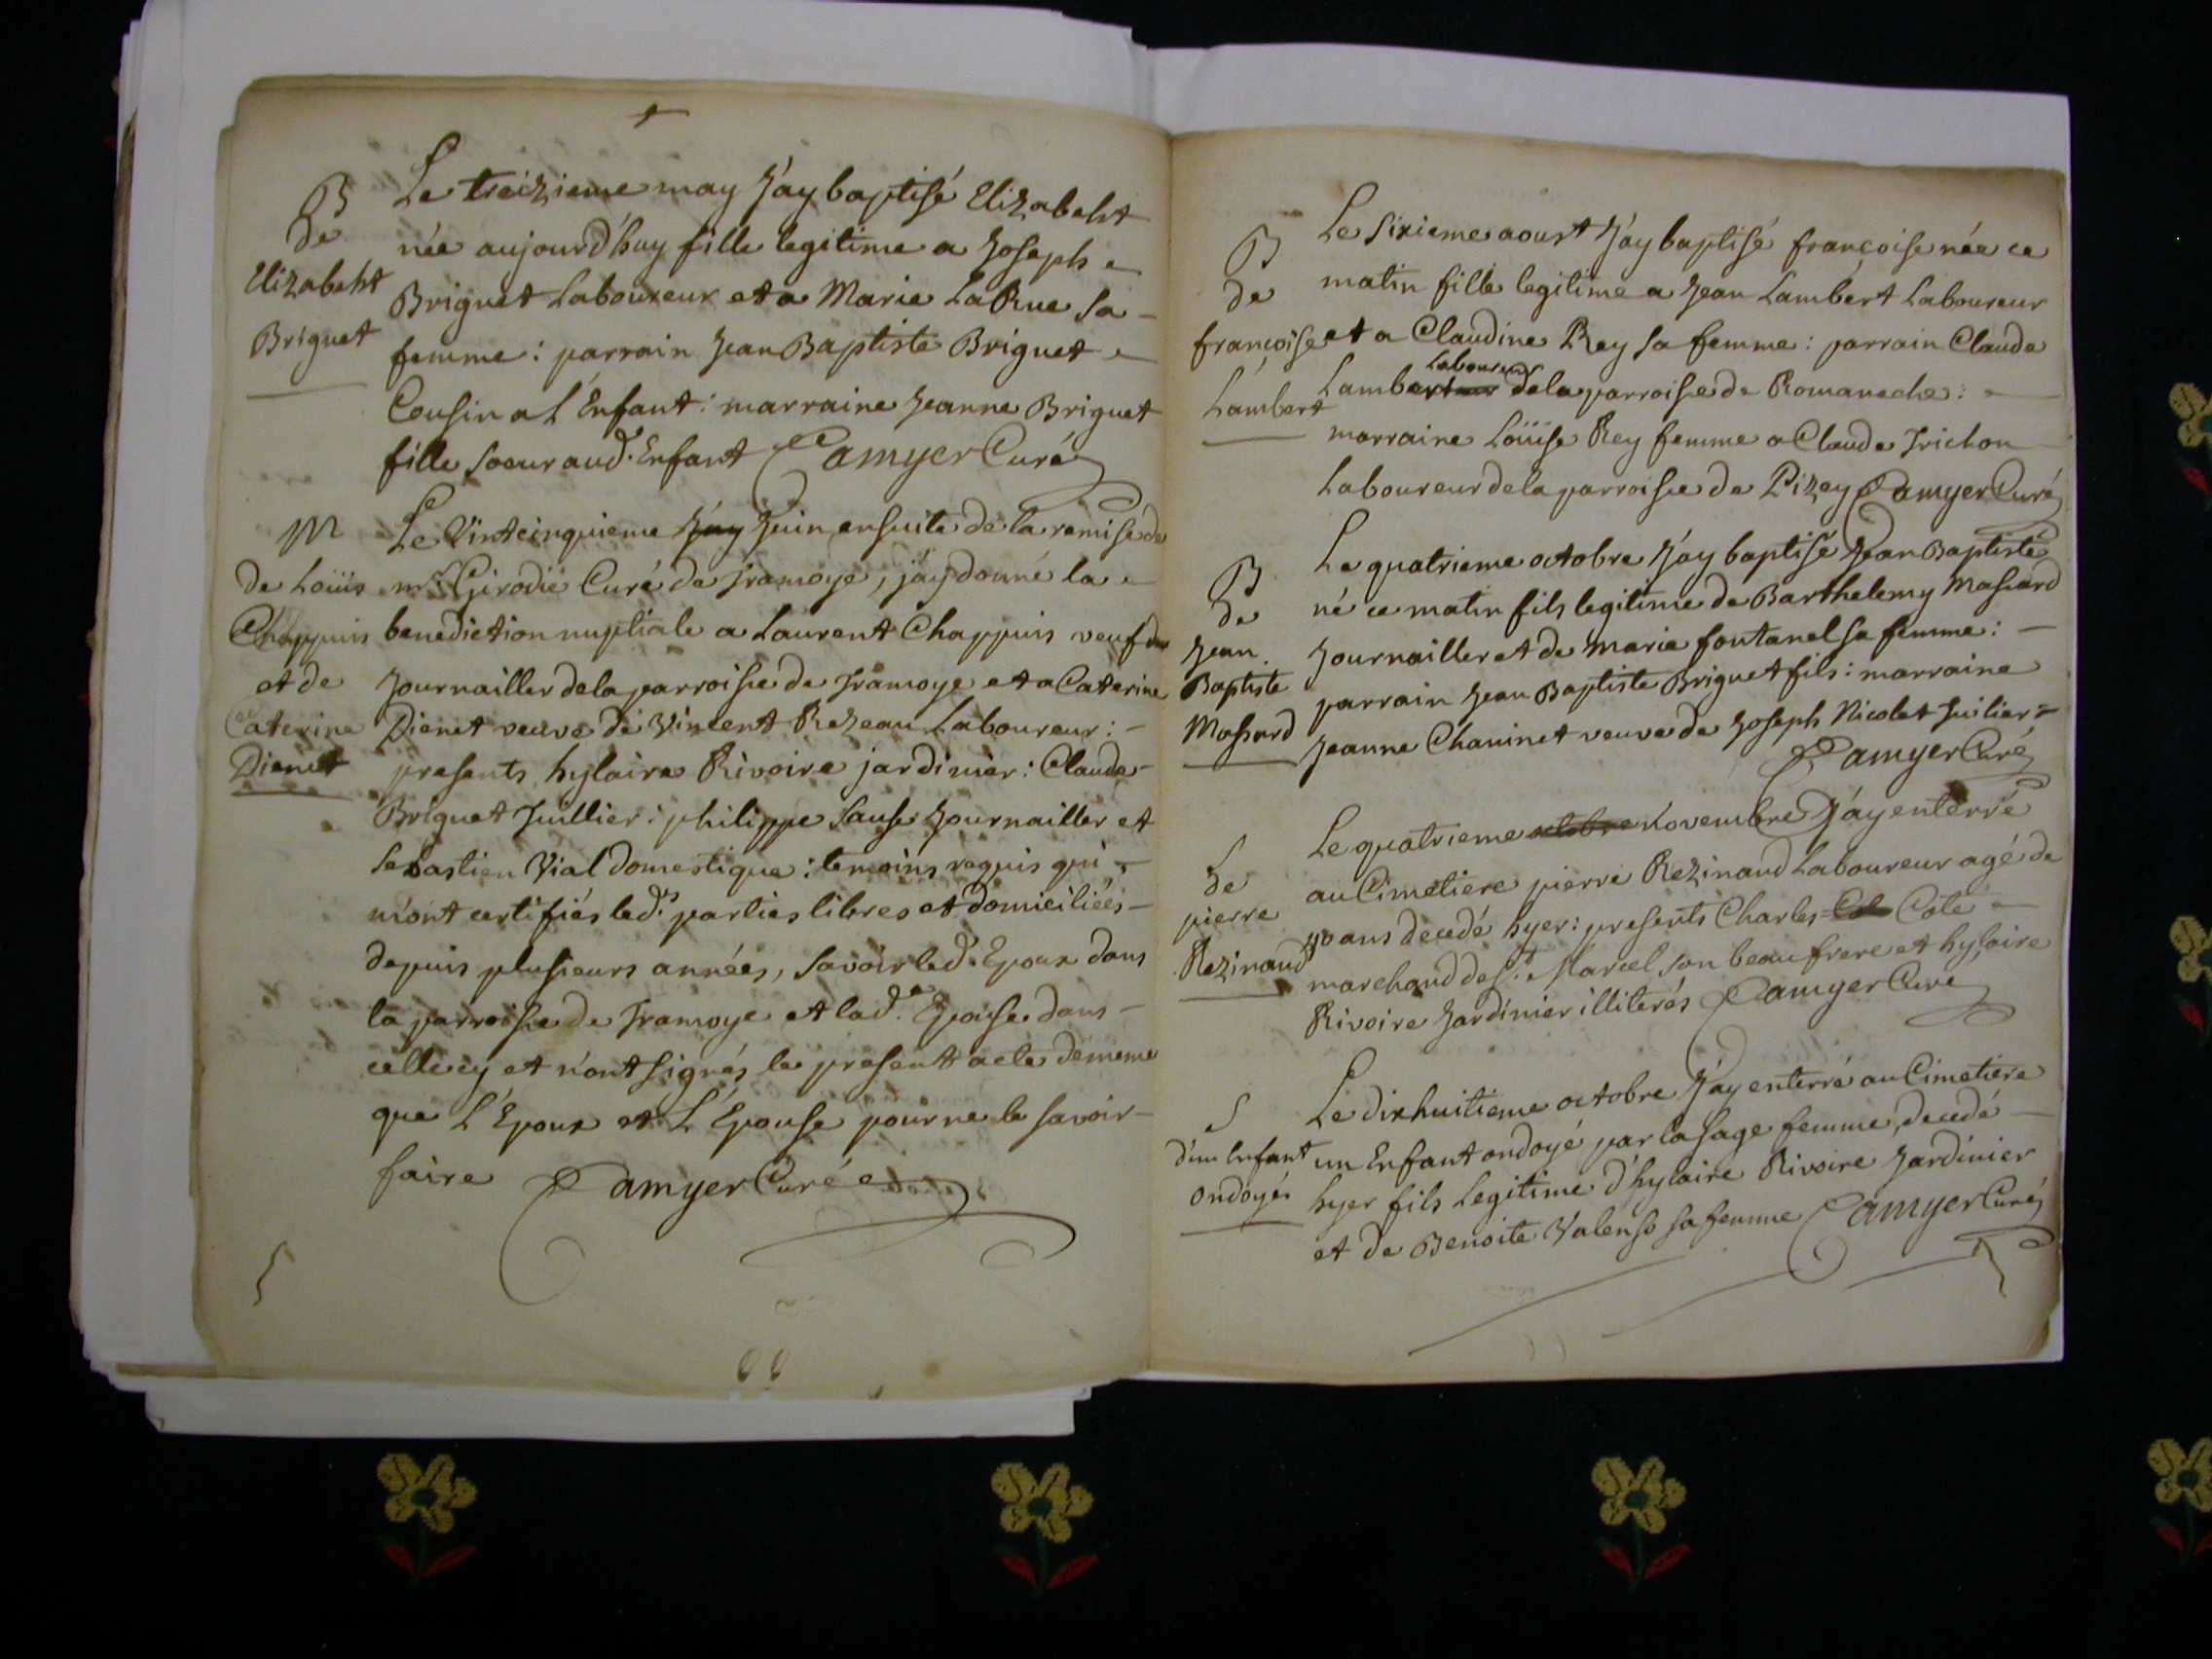 B
de
Elizabeht
Briguet
Le treizieme may J'ay baptisé Elizabeht
née aujourd'huy fille legitime a Joseph
Briguet Laboureur et a Marie LaRue sa
femme : parrain Jean Baptiste Briguet
Cousin a L'Enfant : marraine Jeanne Briguet
fille soeur aud. Enfant Camyer Curé
M
de Loüis
Chappuis
et de
Caterine
Dienet
Le Vintcinquieme J'ay Juin ensuite de la remise de
mr. Girodié Curé de Tramoye, j'ay donné la
benediction nuptiale a Laurent Chappuis veuf
Journaillier de la parroisse de Tramoye et a Caterine
Dienet veuve de Vincent Rezeau Laboureur :
presents hylaire Rivoire jardinier : Claude
Briguet Tuillier : philippe Sause Journailler et
Sebastien Vial domestique : temoins requis qui
m'ont certifiés led.s parties libres et domiciliées
depuis plusieurs années, savoir led. Epoux dans
la parroisse de Tramoye et lad.e Epouse dans
celle cy et n'ont signés le present acte de meme
que L'Epoux et L'Epouse pour ne le savoir
faire Camyer Curé
B
de
francoise
Lambert
Le sixieme aoust J'ay baptisé francoise née ce
matin fille legitime a Jean Lambert Laboureur
et a Claudine Rey sa femme : parrain Claude
Laboureur
Lambert de la parroisse de Romaneche :
marraine Loüise Rey femme a Claude Trichon
Laboureur de la parroisse de Pizey Camyer Curé
B
de
Jean
Baptiste
Massard
Le quatrieme octobre J'ay baptisé Jean Baptiste
né ce matin fils legitime de Barthelemy Massard
Journailler et de Marie fontanel sa femme :
parrain Jean Baptiste Briguet fils : marraine
Jeanne Chaninet veuve de Joseph Nicolet Tuilier
Camyer Curé
S
de
pierre
Rezinand
Le quatrieme octobre Novembre J'ay enterré
au Cimetiere pierre Rezinand Laboureur agé de
ans decedé hyer : presents Charles Cote
marchand de St. Marcel son beau frere et hylaire
Rivoire Jardinier illiterés Camyer Curé
S
d'un Enfant
ondoyé
Le dixhuitieme octobre J'ay enterré au Cimetiere
un Enfant ondoyé par la sage femme, decedé
hyer fils Legitime d'hylaire Rivoire Jardinier
et de Benoite Valenso sa femme Camyer Curé